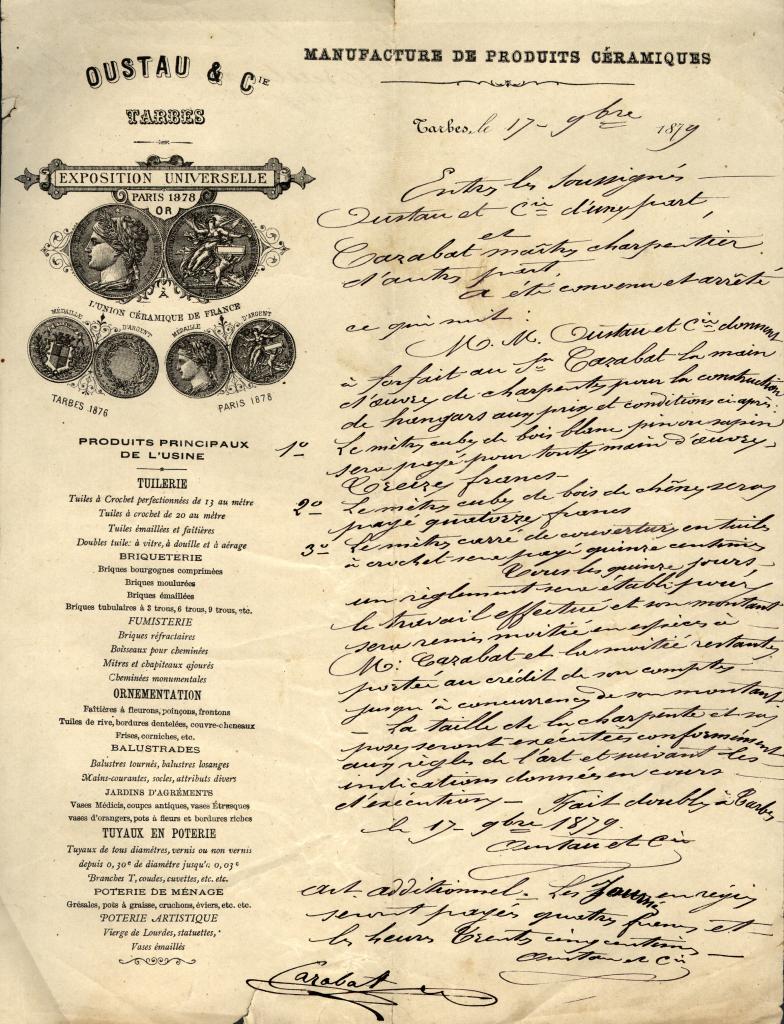 OUSTAU & CIE
TARBES
EXPOSITION UNIVERSELLE
PARIS 1878
OR
À
L'UNION CÉRAMIQUE DE FRANCE
MÉDAILLE D'ARGENT
MÉDAILLE D'ARGENT
TARBES 1876
PARIS 1878
PRODUITS PRINCIPAUX
DE L'USINE
TUILERIE
Tuiles à Crochet perfectionnées de 13 au mètre
Tuiles à crochet de 20 au mètre
Tuiles émaillées et faîtières
Doubles tuile: à vitre, à douille et à aérage
BRIQUETERIE
Briques bourgognes comprimées
Briques moulurées
Briques émaillées
Briques tubulaires à 3 trous, 6 trous, 9 trous, etc.
FUMISTERIE
Briques réfractaires
Boisseaux pour cheminées
Mitres et chapiteaux ajourés
Cheminées monumentales
ORNEMENTATION
Faîtières à fleurons, poinçons, frontons
Tuiles de rive, bordures dentelées, couvre-cheneaux
Frises, corniches, etc.
BALUSTRADES
Balustres tournés, balustres losanges
Mains-courantes, socles, attributs divers
JARDINS D'AGRÉMENTS
Vases Médicis, coupes antiques, vases Étrusques
vases d'orangers, pots à fleurs et bordures riches
TUYAUX EN POTERIE
Tuyaux de tous diamètres, vernis ou non vernis
depuis 0,30e de diamètre jusqu'à 0,03e
Branches T, coudes, cuvettes, etc. etc.
POTERIE DE MÉNAGE
Grésales, pots à graisse, cruchons, éviers, etc. etc.
POTERIE ARTISTIQUE
Vierge de Lourdes, statuettes,
Vases émaillés
MANUFACTURE DE PRODUITS CÉRAMIQUES
Tarbes, le 17 - 9bre 1879
Entre les soussignés
Oustau et Cie d'une part,
et
Cazabat maître charpentier
d'autre part
a été convenu et arrêté
ce qui suit :
M. M. Oustau et Cie donnent
à forfait au Sr Cazabat la main
d'œuvre de charpente pour la construction
de hangars aux prix et conditions ci-après:
1o Le mètre cube de bois blanc pin ou sapin
sera payé pour toute main d'œuvre,
Treize francs
2o Le mètre cube de bois de chêne sera
payé quatorze francs
3o Le mètre carré de couverture en tuile
à crochet sera payé quinze centimes
Tous les quinze jours,
un règlement sera établi pour
le travail effectué et son montant
sera remis moitié en espèces à
M: Cazabat et la moitié restante
portée au crédit de son compte
jusqu'à concurrence de son montant
- La taille de la charpente et sa
pose seront exécutées conformément
aux règles de l'art et suivant les
indications données en cours
d'exécution - Fait double à Tarbes
le 17 - 9bre 1879
Oustau et Cie
art. additionnel - Les Journées en régie
seront payés quatre francs et
les heures Trente cinq centimes -
Oustau et Cie
Cazabat